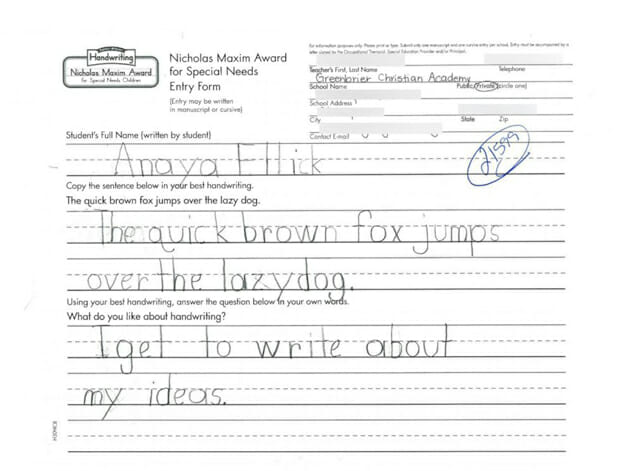 Handwriting
Nicholas Maxim Award
for Special Needs Children
Nicholas Maxim Award
for Special Needs
Entry Form
(Entry may be written
in manuscript or cursive)
For information purposes only. Please print or type. Submit only one manuscript and one cursive entry per school. Entry must be accompanied by a
letter signed by the Occupational Therapist, Special Education Provider and/or Principal.
Teacher's First, Last Name Telephone
Greenbrier Christian Academy
School Name Public/Private (circle one)
School Address
City State Zip
Contact E-mail
Student's Full Name (written by student)
Anaya Ellick
21599
Copy the sentence below in your best handwriting.
The quick brown fox jumps over the lazy dog.
The quick brown fox jumps
over the lazy dog.
Using your best handwriting, answer the question below in your own words.
What do you like about handwriting?
I get to write about
my ideas.